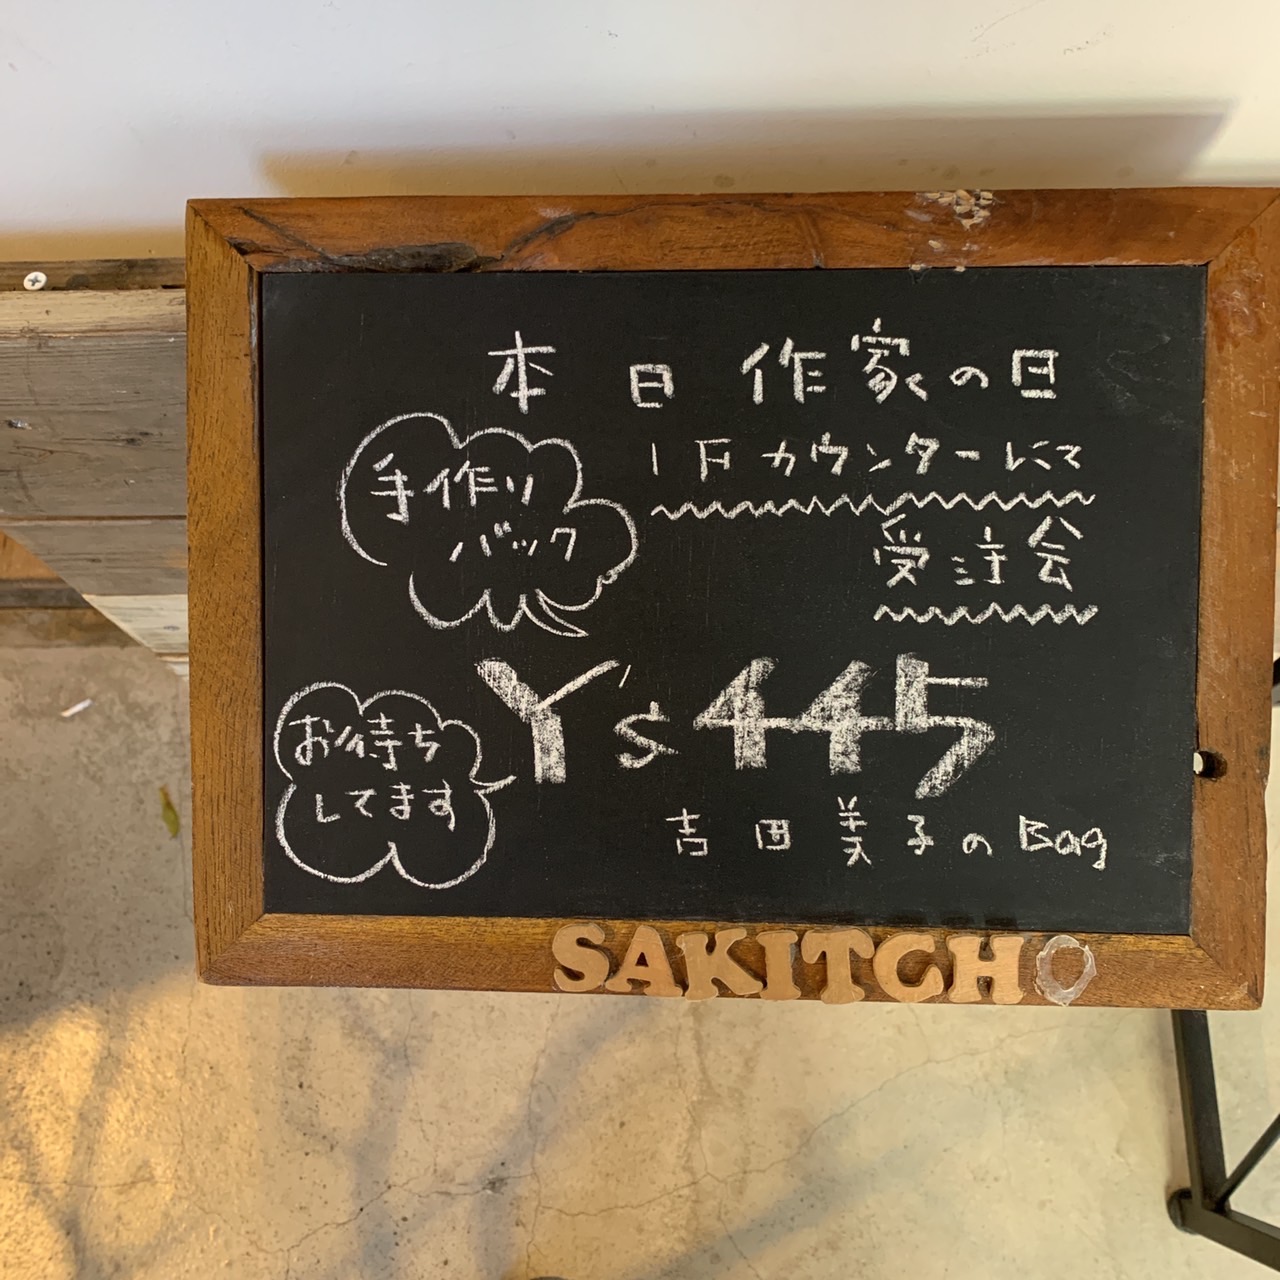 本日作家の日
1Fカウンターにて
手作り
バック
受注会
Y's 445
お待ち
してます
吉田美子のBag
SAKITCHO